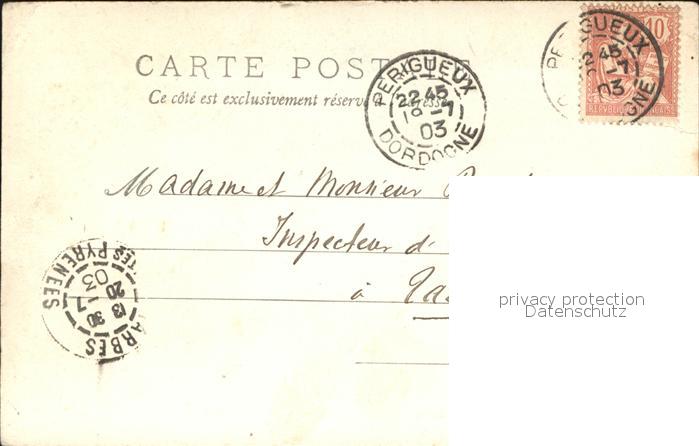 CARTE POSTALE
Ce côté est exclusivement réservé à l'adresse
PERIGUEUX
22 45
18 -7
03
DORDOGNE
PERIGUEUX
22 45
-7
03
10
REPUBLIQUE FRANÇAISE
Madame et Monsieur
Inspecteur d'
à Ta
TARBES
13 30
20 -7
03
TES PYRENEES
privacy protection
Datenschutz